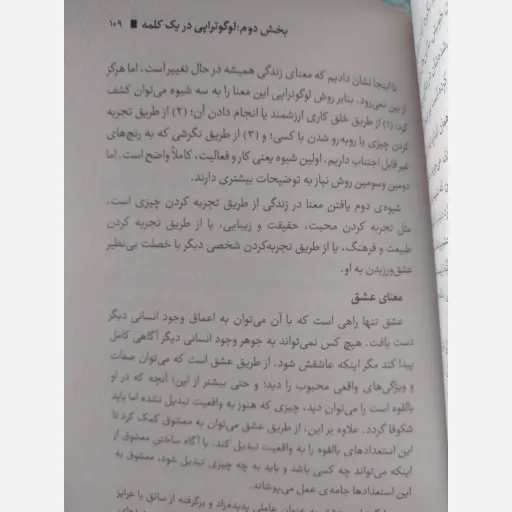 بخش دوم: لوگوتراپی در یک کلمه ■ ۱۰۹
تا اینجا نشان دادیم که معنای زندگی همیشه در حال تغییر است، اما هرگز
از بین نمی‌رود. بنابر روش لوگوتراپی این معنا را به سه شیوه می‌توان کشف
کرد: (۱) از طریق خلق کاری ارزشمند یا انجام دادن آن؛ (۲) از طریق تجربه
کردن چیزی یا روبه‌رو شدن با کسی؛ و (۳) از طریق نگرشی که به رنج‌های
غیر قابل اجتناب داریم. اولین شیوه یعنی کار و فعالیت، کاملاً واضح است. اما
دومین وسومین روش نیاز به توضیحات بیشتری دارند.
شیوه‌ی دوم یافتن معنا در زندگی از طریق تجربه کردن چیزی است،
مثل تجربه کردن محبت، حقیقت و زیبایی، یا از طریق تجربه کردن
طبیعت و فرهنگ، یا از طریق تجربه‌کردن شخصی دیگر با خصلت بی‌نظیر
عشق‌ورزیدن به او.
معنای عشق
عشق تنها راهی است که با آن می‌توان به اعماق وجود انسانی دیگر
دست یافت. هیچ کس نمی‌تواند به جوهر وجود انسانی دیگر آگاهی کامل
پیدا کند مگر اینکه عاشقش شود. از طریق عشق است که می‌توان صفات
و ویژگی‌های واقعی محبوب را دید؛ و حتی بیشتر از این؛ آنچه که در او
بالقوه است را می‌توان دید، چیزی که هنوز به واقعیت تبدیل نشده اما باید
شکوفا گردد. علاوه بر این، از طریق عشق می‌توان به معشوق کمک کرد تا
این استعدادهای بالقوه را به واقعیت تبدیل کند. با آگاه ساختن معشوق از
اینکه می‌تواند چه کسی باشد و باید به چه چیزی تبدیل شود، معشوق به
این استعدادها جامه‌ی عمل می‌پوشاند.
به عنوان عاملی پدیده‌زاد و برگرفته از سائق یا غرایز